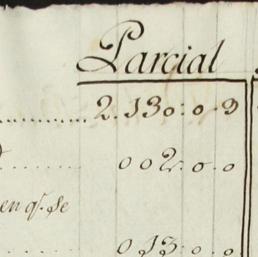 Parcial
2.130.0.9
002.0.0
en q.e se
013.0.0